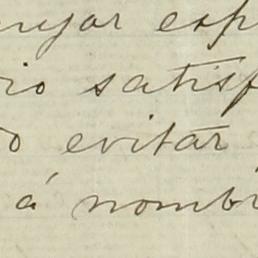 enyar esp
rio satisf
do evitar
á nombr